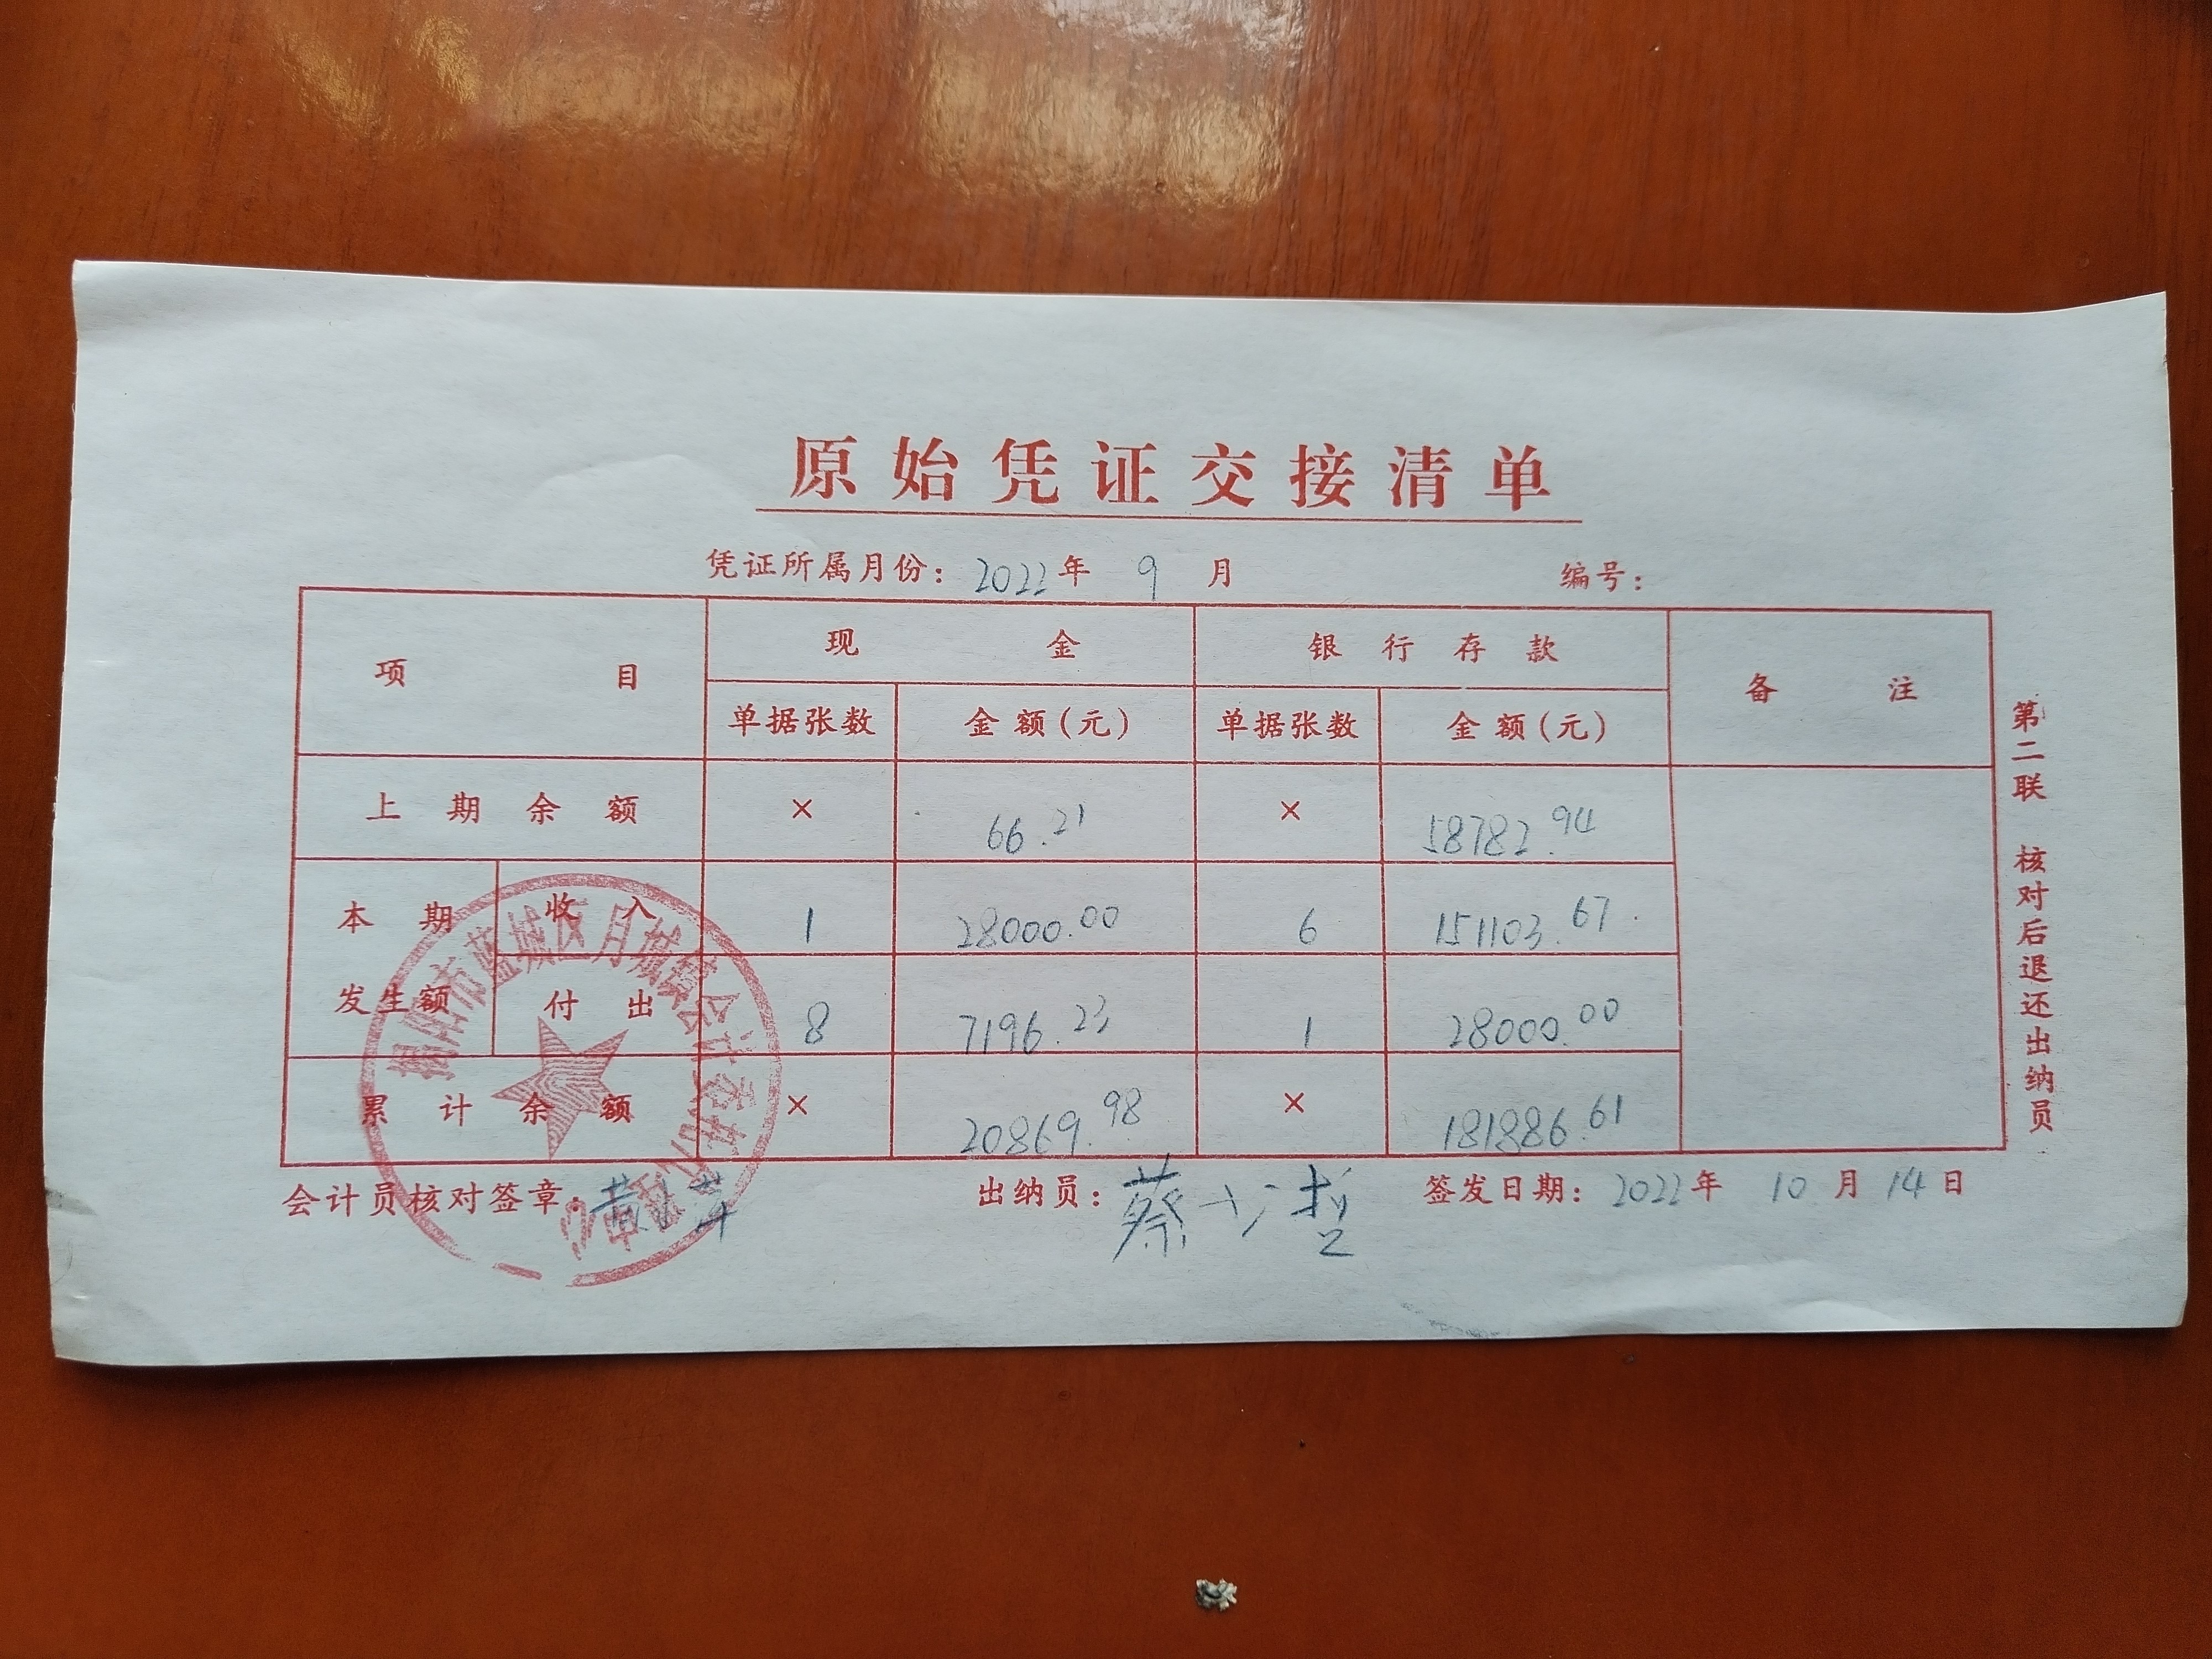 原始凭证交接清单
凭证所属月份：2022年 9 月 编号：
项目 现金 银行存款 备注
单据张数 金额(元) 单据张数 金额(元)
上期余额 × 66.21 × 58782.94
本期发生额 收入 1 28000.00 6 151103.67
付出 8 7196.23 1 28000.00
累计余额 × 20869.98 × 181886.61
会计员核对签章： 黄 出纳员：蔡 签发日期：2022年 10 月 14 日
第二联 核对后退还出纳员
揭阳市蓝城区月城镇会计委托